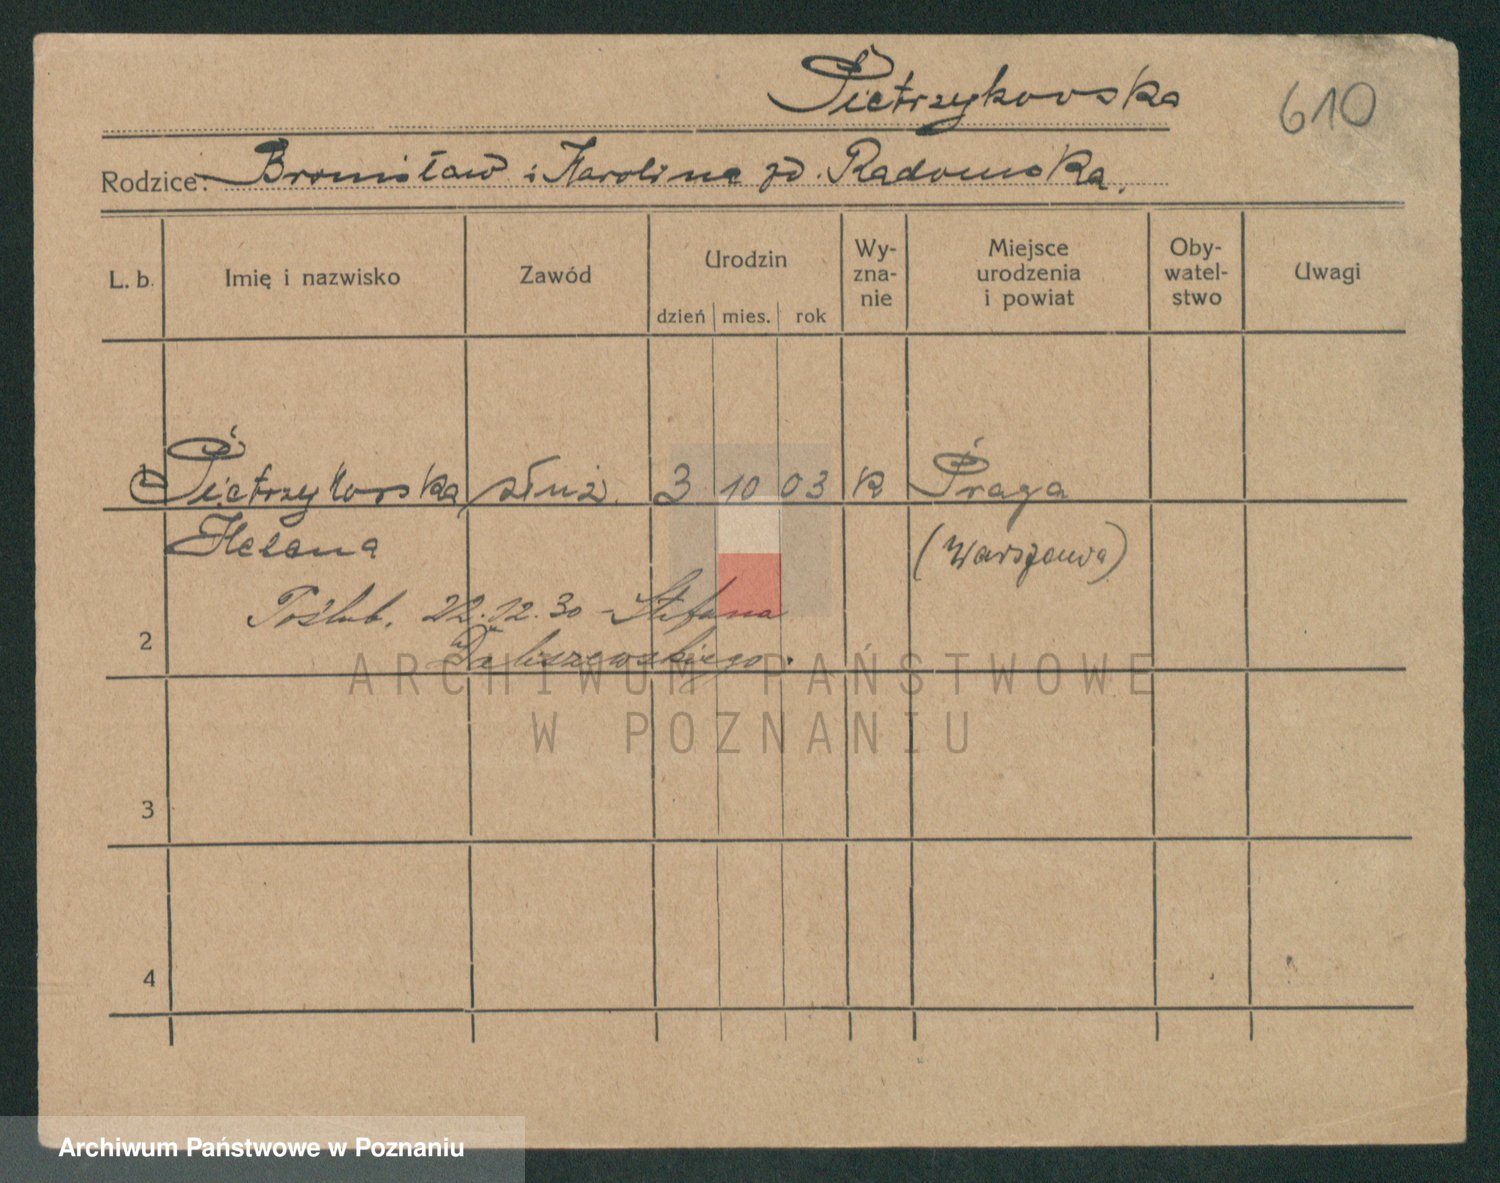 Pietrzykowska
610
Rodzice: Bronisław i Karolina zd. Radomska.
L. b. Imię i nazwisko Zawód Urodzin dzień mies. rok Wy-zna-nie Miejsce urodzenia i powiat Oby-watel-stwo Uwagi
1 Pietrzykowska służ. 3 10 03 k Praga
Helena (Warszawa)
Poślub. 22.12.30 Stefana
2
ARCHIWUM PAŃSTWOWE
W POZNANIU
3
4
Archiwum Państwowe w Poznaniu